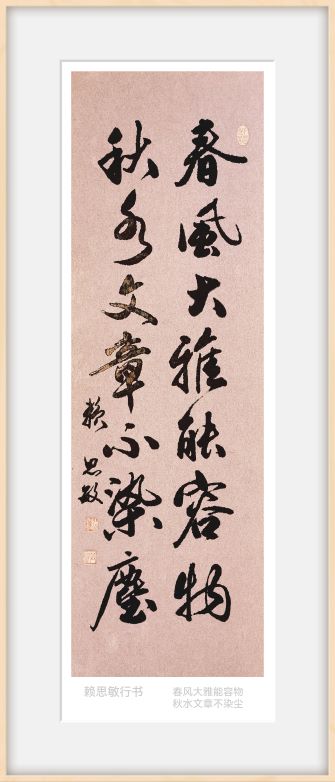 春風大雅能容物
秋水文章不染塵
赖思敏
赖思敏行书
春风大雅能容物
秋水文章不染尘